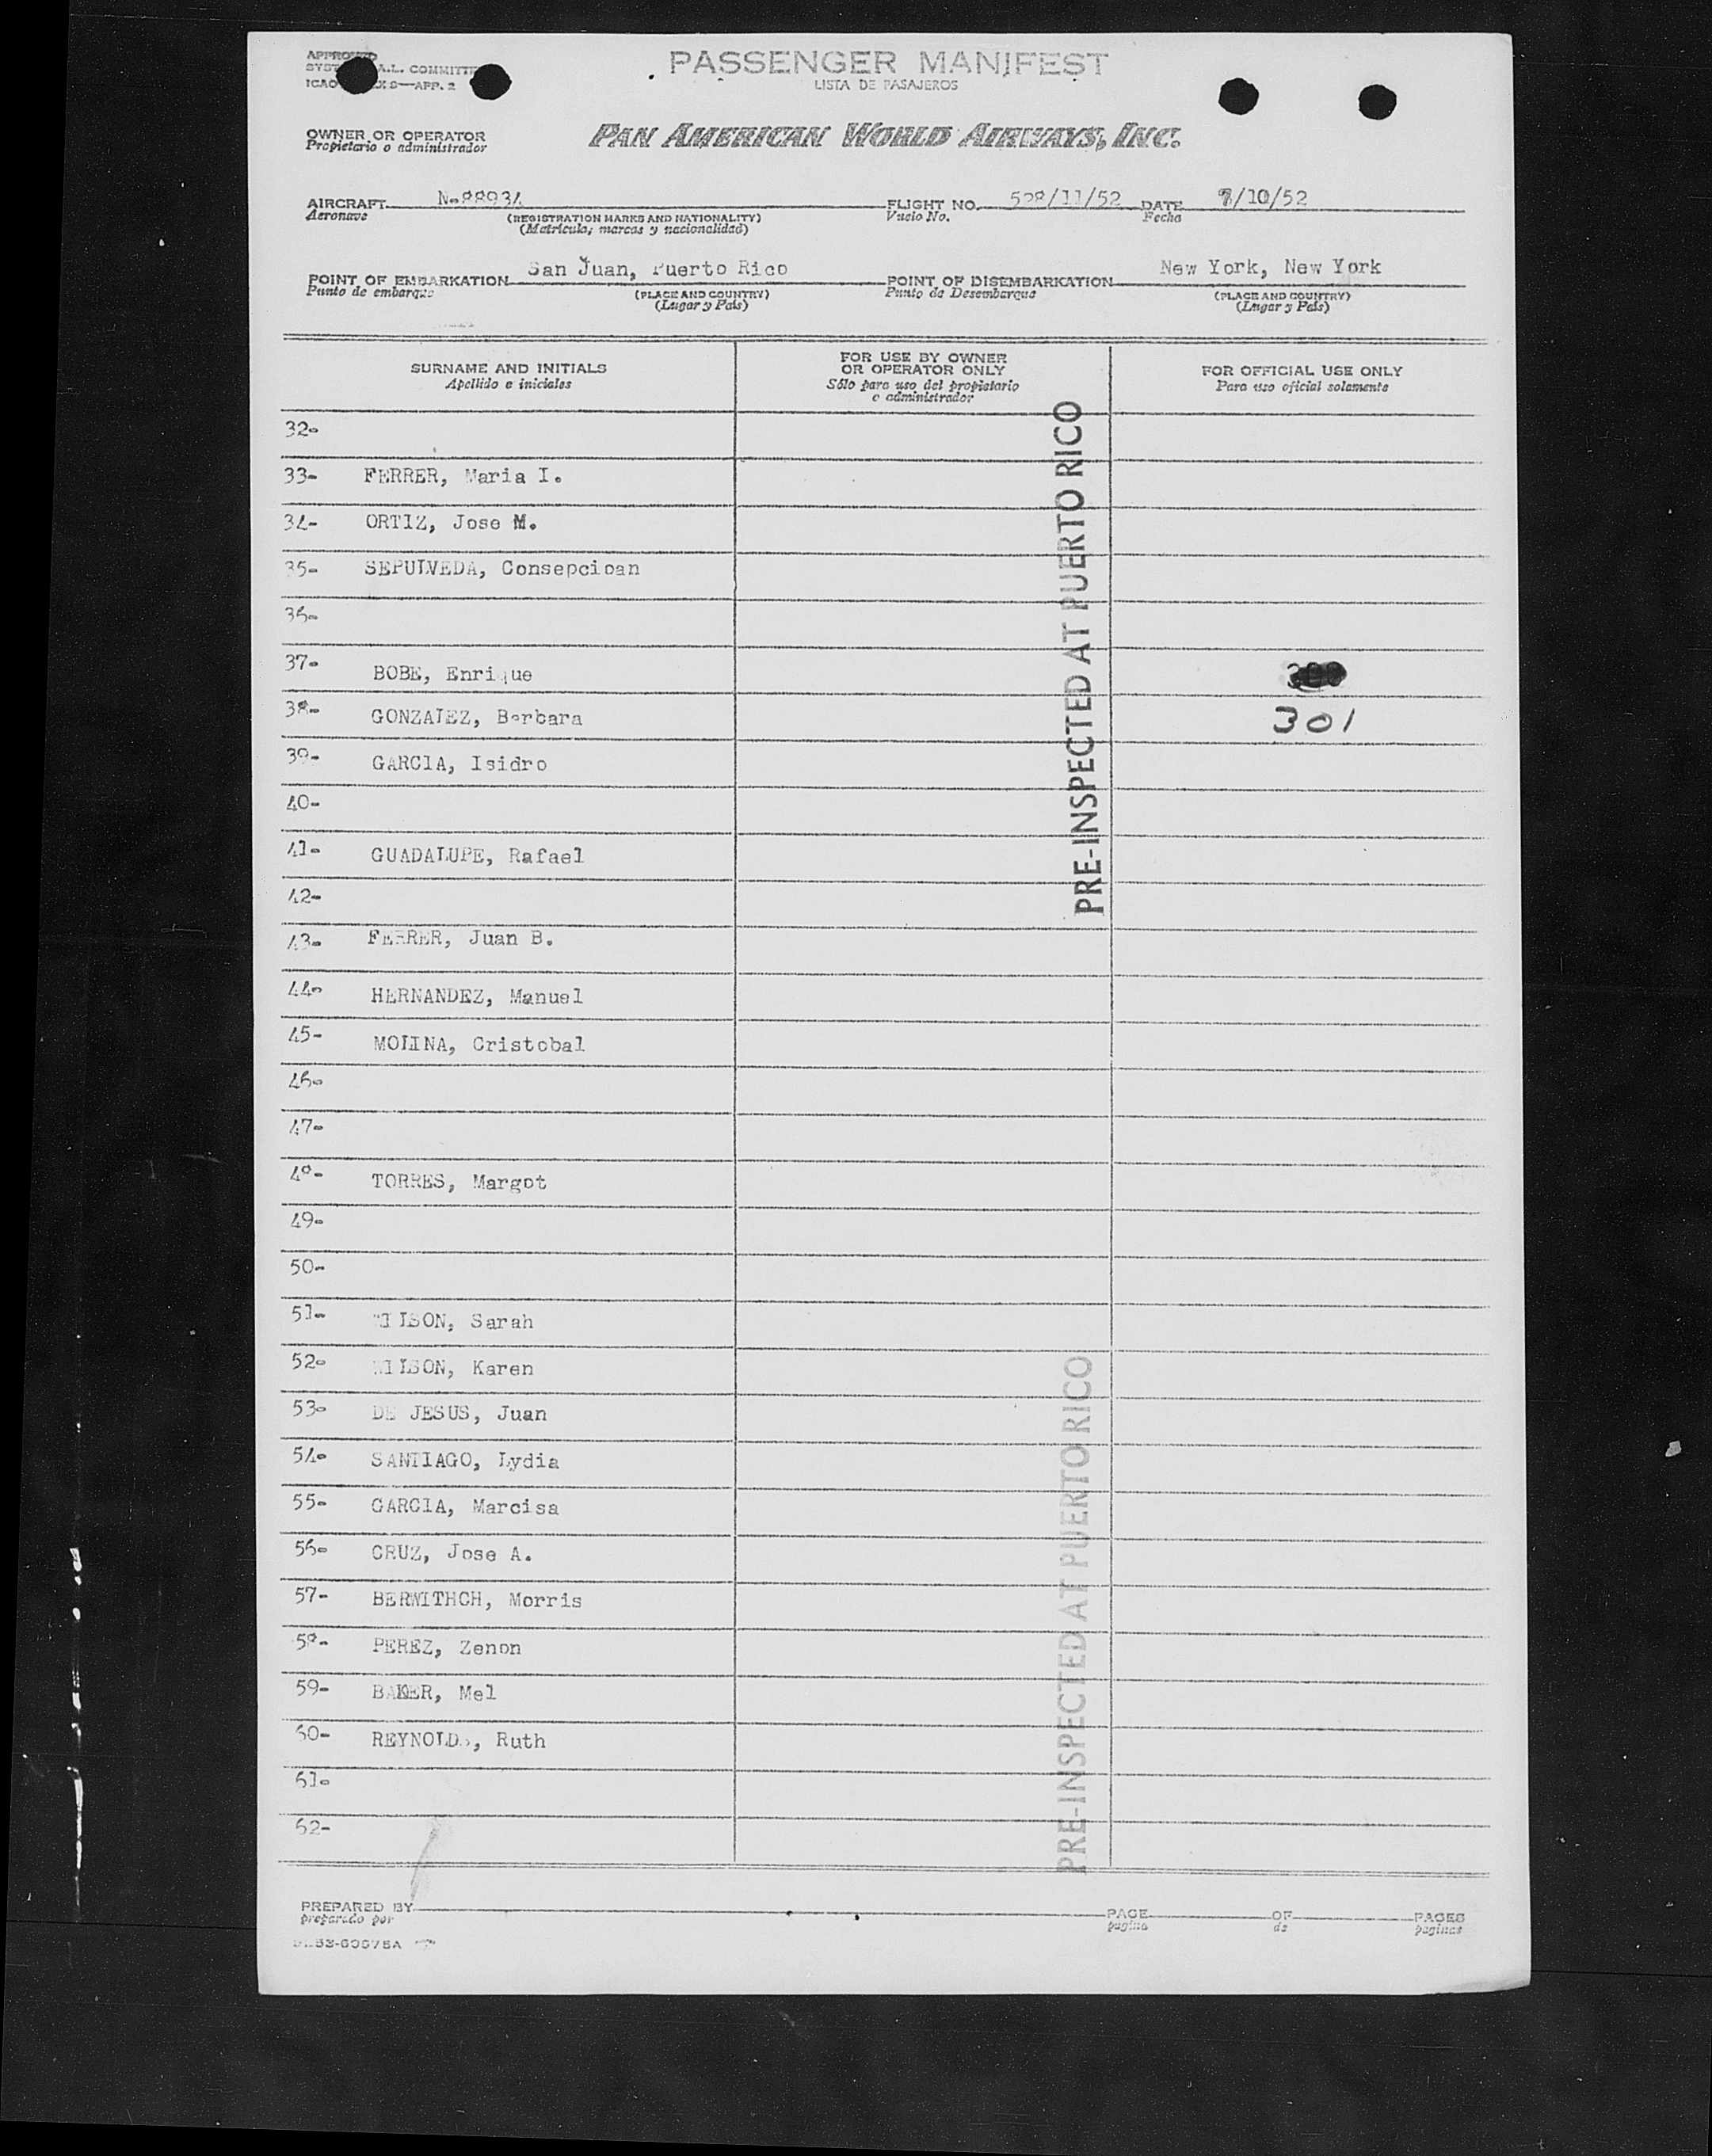 APPROVED
SYST A.L. COMMITTE
ICAO X 9—APP. 2
PASSENGER MANIFEST
LISTA DE PASAJEROS
OWNER OR OPERATOR
Propietario o administrador
PAN AMERICAN WORLD AIRWAYS, INC.
AIRCRAFT N-88934 FLIGHT NO. 528/11/52 DATE 7/10/52
Aeronave (REGISTRATION MARKS AND NATIONALITY) Vuelo No. Fecha
(Matrícula, marcas y nacionalidad)
POINT OF EMBARKATION San Juan, Puerto Rico POINT OF DISEMBARKATION New York, New York
Punto de embarque (PLACE AND COUNTRY) Punto de Desembarque (PLACE AND COUNTRY)
(Lugar y País) (Lugar y País)
SURNAME AND INITIALS
Apellido e iniciales
FOR USE BY OWNER
OR OPERATOR ONLY
Sólo para uso del propietario
o administrador
FOR OFFICIAL USE ONLY
Para uso oficial solamente
32-
33- FERRER, Maria I.
34- ORTIZ, Jose M.
35- SEPULVEDA, Consepcioan
36-
37- BOBE, Enrique
38- GONZALEZ, Barbara 301
39- GARCIA, Isidro
40-
41- GUADALUPE, Rafael
42-
43- FERRER, Juan B.
44- HERNANDEZ, Manuel
45- MOLINA, Cristobal
46-
47-
48- TORRES, Margot
49-
50-
51- WILSON, Sarah
52- WILSON, Karen
53- DE JESUS, Juan
54- SANTIAGO, Lydia
55- GARCIA, Marcisa
56- CRUZ, Jose A.
57- BERWITHCH, Morris
58- PEREZ, Zenon
59- BAKER, Mel
60- REYNOLDS, Ruth
61-
62-
PRE-INSPECTED AT PUERTO RICO
PRE-INSPECTED AT PUERTO RICO
PREPARED BY PAGE OF PAGES
preparado por pagina de paginas